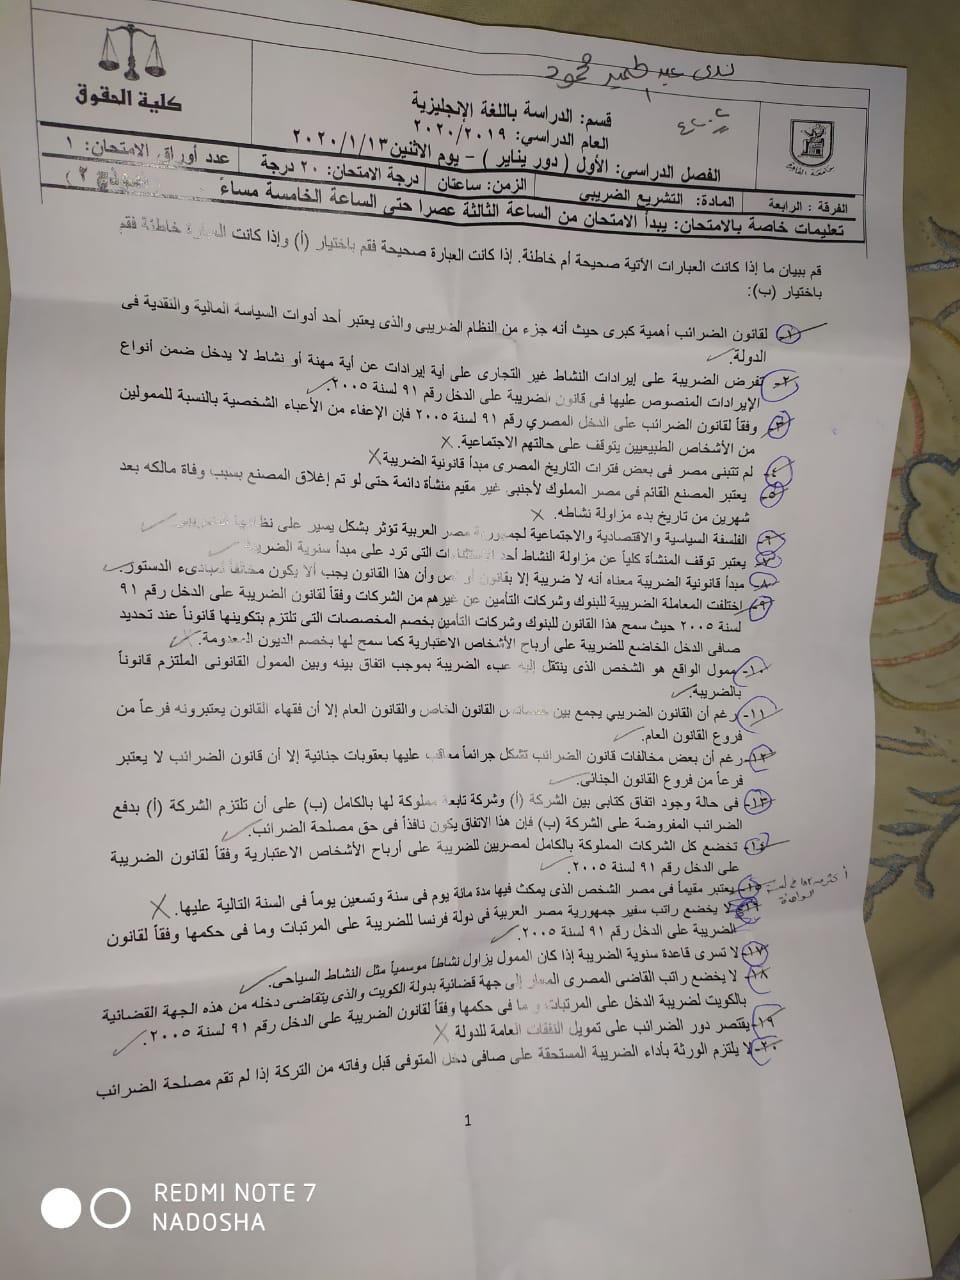 ندى عبد محمود
كلية الحقوق
قسم: الدراسة باللغة الإنجليزية
العام الدراسي: ٢٠٢٠/٢٠١٩
الفصل الدراسي: الأول ( دور يناير ) - يوم الاثنين ٢٠٢٠/١/١٣
الفرقة : الرابعة المادة: التشريع الضريبي الزمن: ساعتان درجة الامتحان: ٢٠ درجة عدد أوراق الامتحان: ١
تعليمات خاصة بالامتحان: يبدأ الامتحان من الساعة الثالثة عصرا حتى الساعة الخامسة مساءً (نموذج ٢)
قم ببيان ما إذا كانت العبارات الآتية صحيحة أم خاطئة. إذا كانت العبارة صحيحة فقم باختيار (أ) وإذا كانت العبارة خاطئة فقم
باختيار (ب):
١- لقانون الضرائب أهمية كبرى حيث أنه جزء من النظام الضريبى والذى يعتبر أحد أدوات السياسة المالية والنقدية فى
الدولة.
٢- تفرض الضريبة على إيرادات النشاط غير التجارى على أية إيرادات عن أية مهنة أو نشاط لا يدخل ضمن أنواع
الإيرادات المنصوص عليها فى قانون الضريبة على الدخل رقم ٩١ لسنة ٢٠٠٥.
٣- وفقاً لقانون الضرائب على الدخل المصري رقم ٩١ لسنة ٢٠٠٥ فإن الإعفاء من الأعباء الشخصية بالنسبة للممولين
من الأشخاص الطبيعيين يتوقف على حالتهم الاجتماعية.
٤- لم تتبنى مصر فى بعض فترات التاريخ المصرى مبدأ قانونية الضريبة
٥- يعتبر المصنع القائم فى مصر المملوك لأجنبي غير مقيم منشأة دائمة حتى لو تم إغلاق المصنع بسبب وفاة مالكه بعد
شهرين من تاريخ بدء مزاولة نشاطه.
٦- الفلسفة السياسية والاقتصادية والاجتماعية لجمهورية مصر العربية تؤثر بشكل يسير على نظامها الضريبى.
٧- يعتبر توقف المنشأة كلياً عن مزاولة النشاط أحد الاستثناءات التى ترد على مبدأ سنوية الضريبة
٨- مبدأ قانونية الضريبة معناه أنه لا ضريبة إلا بقانون أو نص وأن هذا القانون يجب ألا يكون مخالفاً لمبادىء الدستور.
٩- إختلفت المعاملة الضريبية للبنوك وشركات التأمين عن غيرهم من الشركات وفقاً لقانون الضريبة على الدخل رقم ٩١
لسنة ٢٠٠٥ حيث سمح هذا القانون للبنوك وشركات التأمين بخصم المخصصات التى تلتزم بتكوينها قانوناً عند تحديد
صافى الدخل الخاضع للضريبة على أرباح الأشخاص الاعتبارية كما سمح لها بخصم الديون المعدومة.
١٠- ممول الواقع هو الشخص الذى ينتقل إليه عبء الضريبة بموجب اتفاق بينه وبين الممول القانونى الملتزم قانوناً
بالضريبة.
١١- رغم أن القانون الضريبي يجمع بين خصائص القانون الخاص والقانون العام إلا أن فقهاء القانون يعتبرونه فرعاً من
فروع القانون العام.
١٢- رغم أن بعض مخالفات قانون الضرائب تشكل جرائماً معاقب عليها بعقوبات جنائية إلا أن قانون الضرائب لا يعتبر
فرعاً من فروع القانون الجنائى.
١٣- فى حالة وجود اتفاق كتابى بين الشركة (أ) وشركة تابعة مملوكة لها بالكامل (ب) على أن تلتزم الشركة (أ) بدفع
الضرائب المفروضة على الشركة (ب) فإن هذا الاتفاق يكون نافذاً فى حق مصلحة الضرائب.
١٤- تخضع كل الشركات المملوكة بالكامل لمصريين للضريبة على أرباح الأشخاص الاعتبارية وفقاً لقانون الضريبة
على الدخل رقم ٩١ لسنة ٢٠٠٥.
١٥- يعتبر مقيماً فى مصر الشخص الذى يمكث فيها مدة مائة يوم فى سنة وتسعين يوماً فى السنة التالية عليها.
١٦- لا يخضع راتب سفير جمهورية مصر العربية فى دولة فرنسا للضريبة على المرتبات وما فى حكمها وفقاً لقانون
الضريبة على الدخل رقم ٩١ لسنة ٢٠٠٥.
١٧- لا تسرى قاعدة سنوية الضريبة إذا كان الممول يزاول نشاطاً موسمياً مثل النشاط السياحى.
١٨- لا يخضع راتب القاضى المصرى المعار إلى جهة قضائية بدولة الكويت والذى يتقاضى دخله من هذه الجهة القضائية
بالكويت لضريبة الدخل على المرتبات وما فى حكمها وفقاً لقانون الضريبة على الدخل رقم ٩١ لسنة ٢٠٠٥.
١٩- يقتصر دور الضرائب على تمويل النفقات العامة للدولة
٢٠- لا يلتزم الورثة بأداء الضريبة المستحقة على صافى دخل المتوفى قبل وفاته من التركة إذا لم تقم مصلحة الضرائب
1
REDMI NOTE 7
NADOSHA